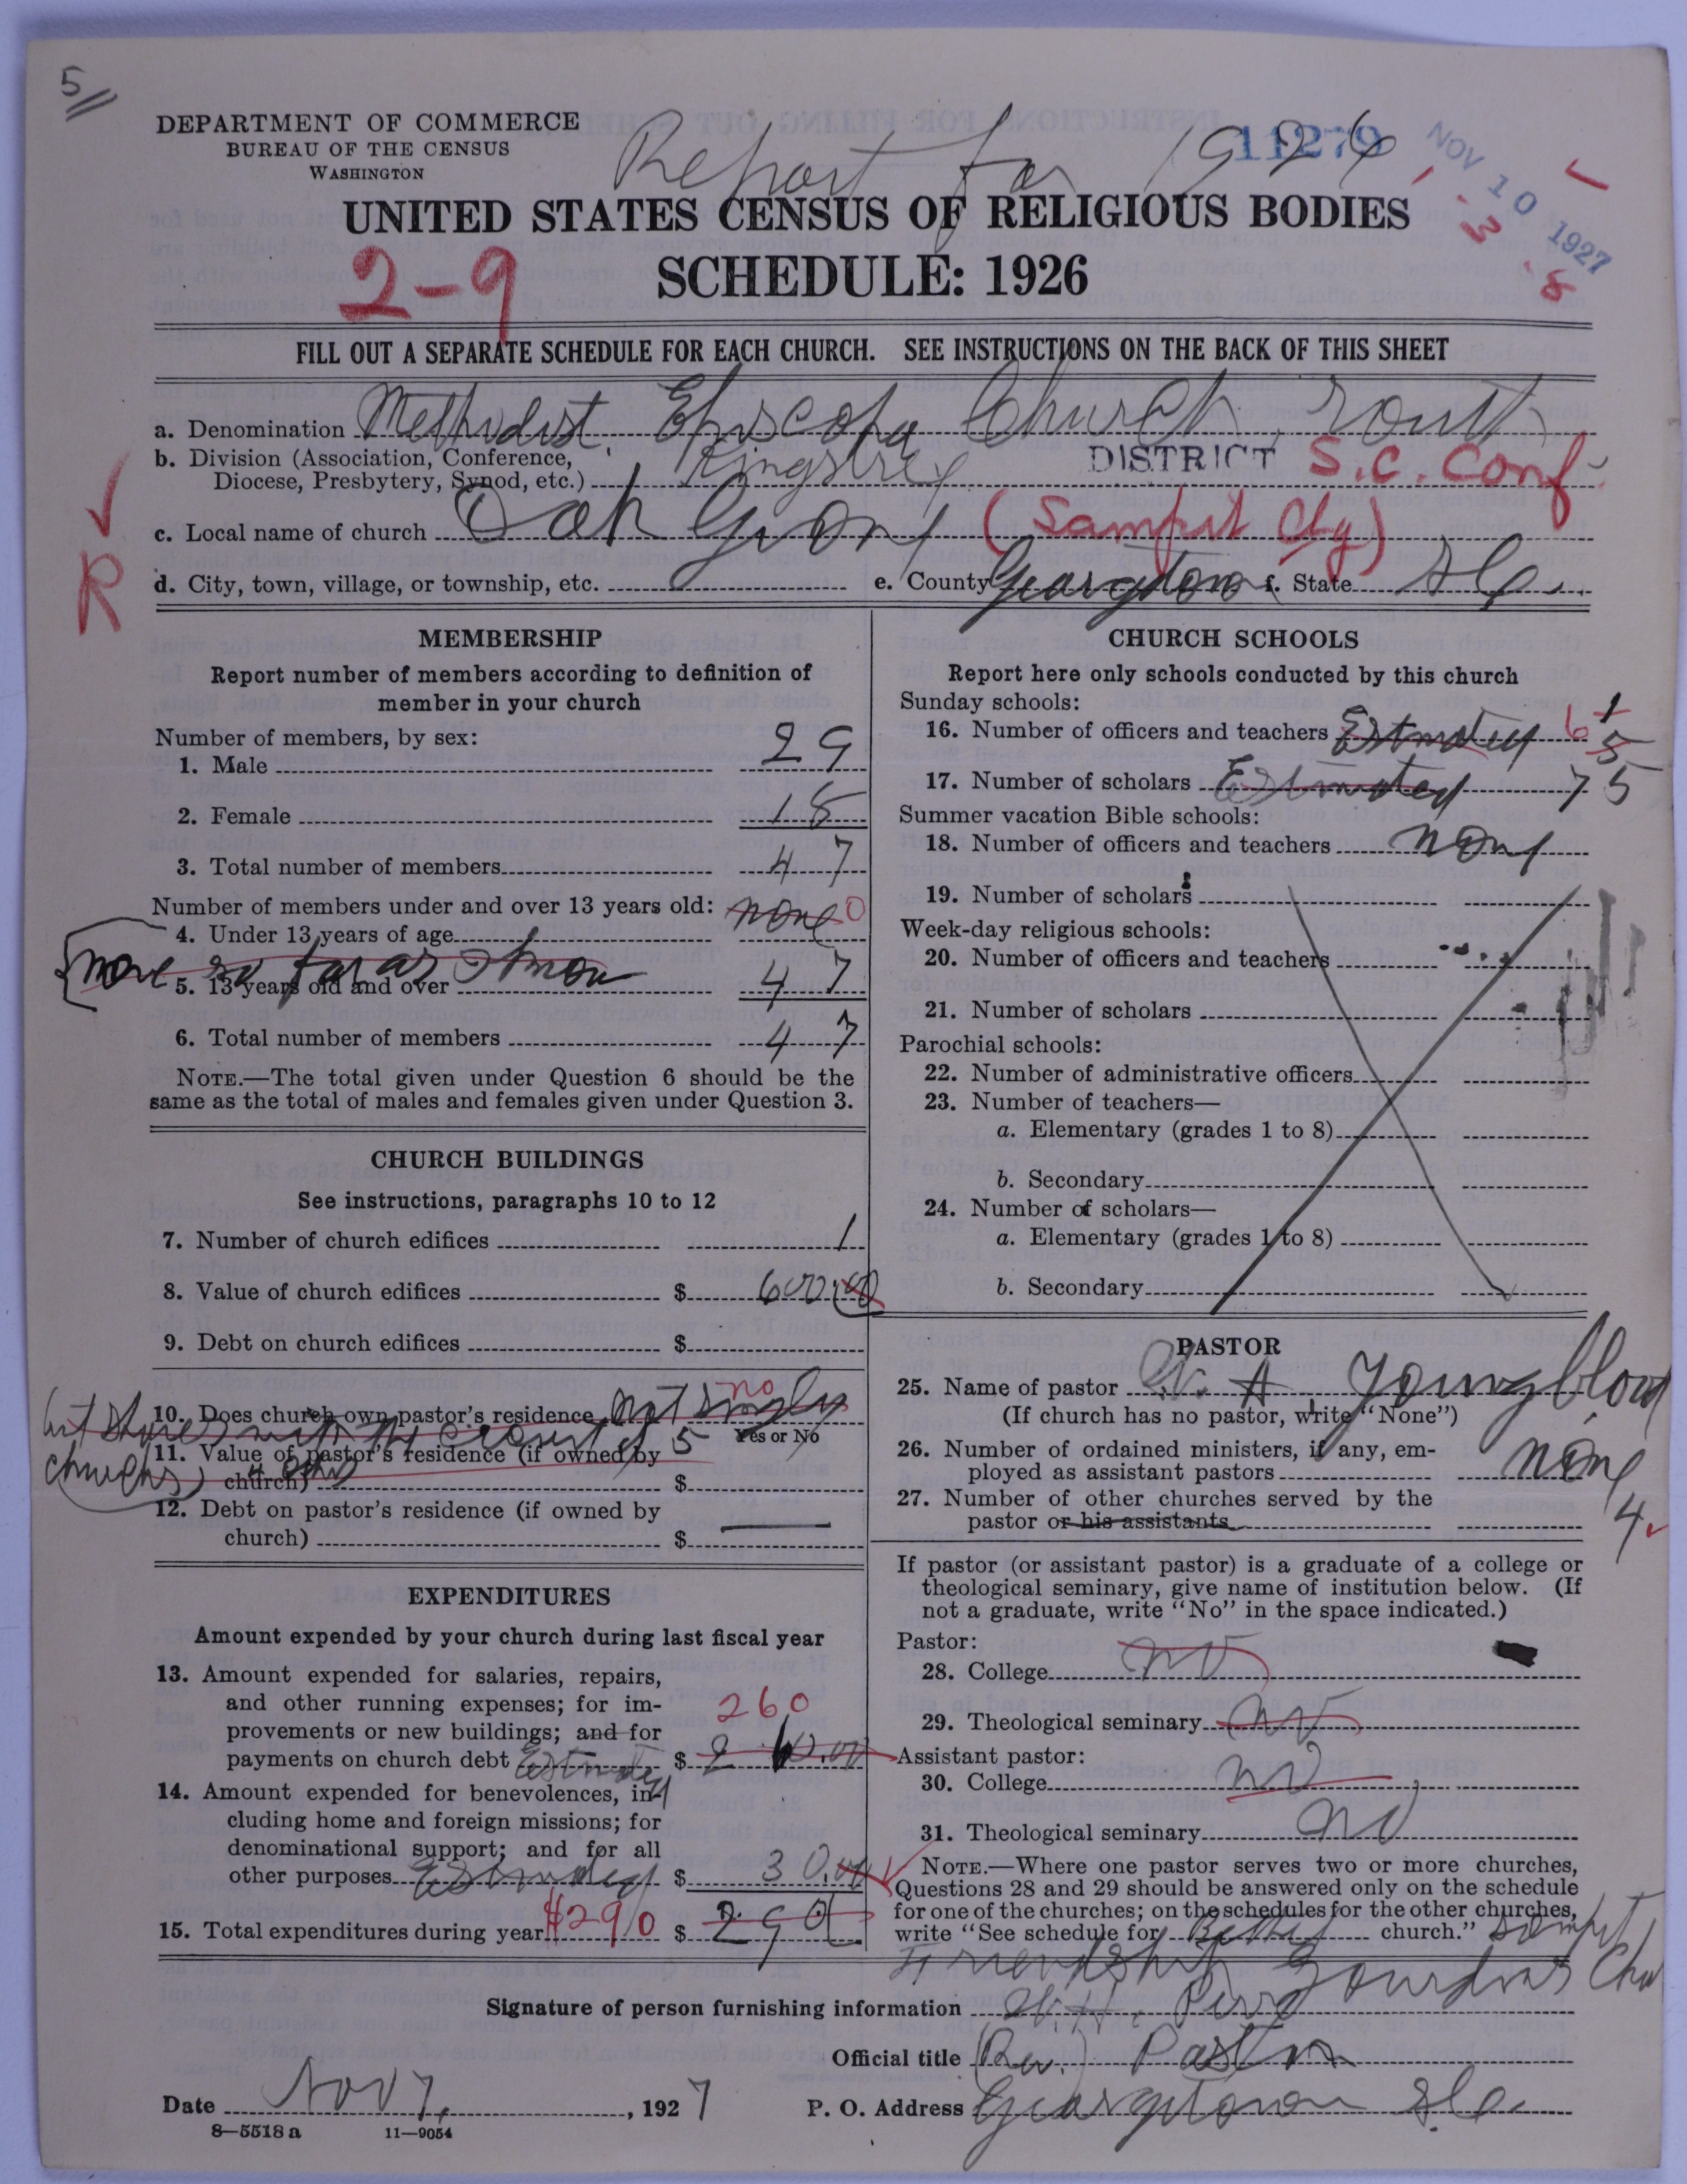 5
DEPARTMENT OF COMMERCE
BUREAU OF THE CENSUS
WASHINGTON
Report for 1926
11279
NOV 10 1927
1
3
8
UNITED STATES CENSUS OF RELIGIOUS BODIES
SCHEDULE: 1926
2-9
FILL OUT A SEPARATE SCHEDULE FOR EACH CHURCH. SEE INSTRUCTIONS ON THE BACK OF THIS SHEET
a. Denomination Methodist Episcopa Church, South
b. Division (Association, Conference, Diocese, Presbytery, Synod, etc.) Kingstree DISTRICT S.C. Conf.
R
c. Local name of church Oak Grove (Sampit Chg)
d. City, town, village, or township, etc. e. County Georgetown f. State S.C.
MEMBERSHIP
Report number of members according to definition of
member in your church
Number of members, by sex:
1. Male 29
2. Female 18
3. Total number of members 47
Number of members under and over 13 years old: none 0
4. Under 13 years of age
none so far as I know
5. 13 years old and over 47
6. Total number of members 47
NOTE.—The total given under Question 6 should be the
same as the total of males and females given under Question 3.
CHURCH BUILDINGS
See instructions, paragraphs 10 to 12
7. Number of church edifices 1
8. Value of church edifices $ 600.00
9. Debt on church edifices $
10. Does church own pastor's residence not singly no
Yes or No
but 5
11. Value of pastor's residence (if owned by
churches) 4 other
church) $
12. Debt on pastor's residence (if owned by
church) $
EXPENDITURES
Amount expended by your church during last fiscal year
13. Amount expended for salaries, repairs,
and other running expenses; for im-
provements or new buildings; and for
payments on church debt Estimated $ 260.00
260
14. Amount expended for benevolences, in-
cluding home and foreign missions; for
denominational support; and for all
other purposes Estimated $ 30.00
15. Total expenditures during year $290 $ 290
CHURCH SCHOOLS
Report here only schools conducted by this church
Sunday schools:
16. Number of officers and teachers Estimated 6 5
17. Number of scholars Estimated 75
Summer vacation Bible schools:
18. Number of officers and teachers none
19. Number of scholars
Week-day religious schools:
20. Number of officers and teachers
21. Number of scholars
Parochial schools:
22. Number of administrative officers
23. Number of teachers—
a. Elementary (grades 1 to 8)
b. Secondary
24. Number of scholars—
a. Elementary (grades 1 to 8)
b. Secondary
PASTOR
25. Name of pastor A. Youngblood
(If church has no pastor, write "None")
26. Number of ordained ministers, if any, em-
ployed as assistant pastors none
27. Number of other churches served by the
pastor or his assistants 4
If pastor (or assistant pastor) is a graduate of a college or
theological seminary, give name of institution below. (If
not a graduate, write "No" in the space indicated.)
Pastor:
28. College no
29. Theological seminary no
Assistant pastor:
30. College no
31. Theological seminary no
NOTE.—Where one pastor serves two or more churches,
Questions 28 and 29 should be answered only on the schedule
for one of the churches; on the schedules for the other churches,
write "See schedule for church." Sampit
Friendship
Signature of person furnishing information
Official title (Rev.) Pastor
Date Nov 7, 1927 P. O. Address Georgetown S.C.
8—5518 a 11—9054